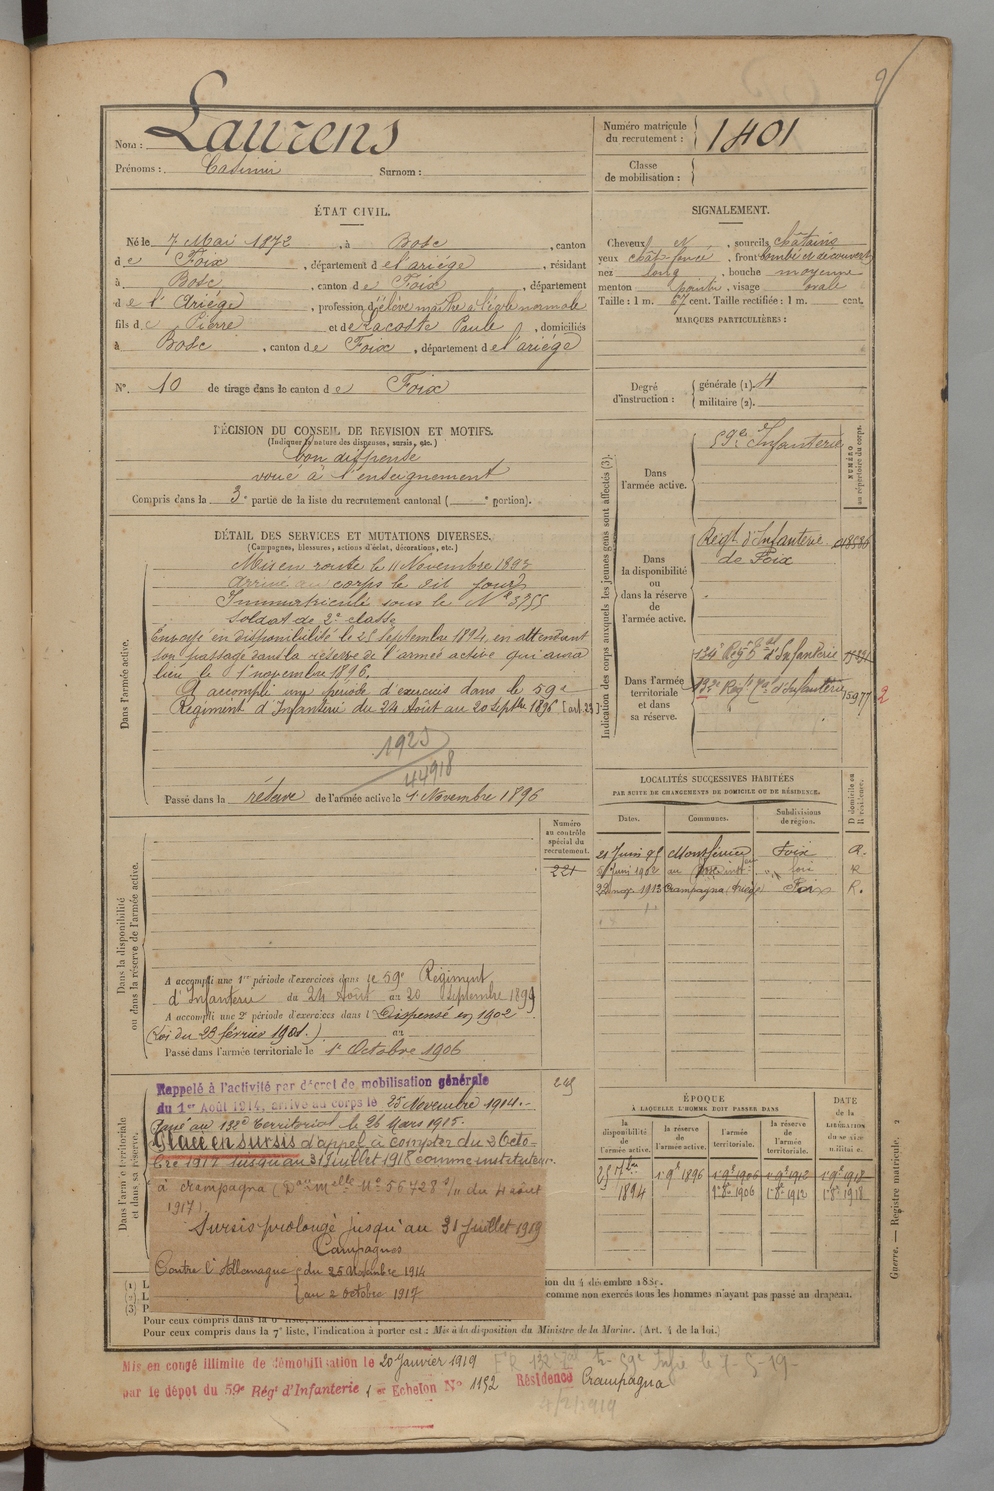 Nom : Laurens
Prénoms : Casimir Surnom :
Numéro matricule du recrutement : 1401
Classe de mobilisation :
ÉTAT CIVIL.
Né le 7 Mai 1872, à Bosc, canton
de Foix, département de l'ariège, résidant
à Bosc, canton de Foix, département
de l'Ariège, profession d'élève maître à l'école normale
fils de Pierre et de Lacoste Paule, domiciliés
à Bosc, canton de Foix, département de l'ariège
N° 10 de tirage dans le canton de Foix
SIGNALEMENT.
Cheveux N, sourcils châtains
yeux chât. foncé, front bombé et découvert
nez long, bouche moyenne
menton pointu, visage ovale
Taille : 1 m. 67 cent. Taille rectifiée : 1 m. cent.
MARQUES PARTICULIÈRES :
Degré d'instruction : générale (1). 4
militaire (2).
DÉCISION DU CONSEIL DE REVISION ET MOTIFS.
(Indiquer la nature des dispenses, sursis, etc.)
bon dispensé
voué à l'enseignement
Compris dans la 3e partie de la liste du recrutement cantonal ( e portion).
DÉTAIL DES SERVICES ET MUTATIONS DIVERSES.
(Campagnes, blessures, actions d'éclat, décorations, etc.)
Dans l'armée active.
Mis en route le 11 Novembre 1893
Arrivé au corps le dit jour
Immatriculé sous le N° 3755
soldat de 2e classe
Envoyé en disponibilité le 25 Septembre 1894, en attendant
son passage dans la réserve de l'armée active qui aura
lieu le 1 novembre 1896.
A accompli une période d'exercices dans le 59e
Régiment d'Infanterie du 24 Août au 20 Septbre 1896 [art. 23]
1925
44918
Passé dans la réserve de l'armée active le 1 Novembre 1896
Indication des corps auxquels les jeunes gens sont affectés (3).
NUMÉRO au répertoire du corps.
Dans l'armée active.
59e d'Infanterie
Dans la disponibilité ou dans la réserve de l'armée active.
Régt d'Infanterie de Foix
Dans l'armée territoriale et dans sa réserve.
134e Régt d'Infanterie
132e Régt d'Infanterie 15977
LOCALITÉS SUCCESSIVES HABITÉES
PAR SUITE DE CHANGEMENTS DE DOMICILE OU DE RÉSIDENCE.
Dates. Communes. Subdivisions de région. Domicile ou Résidence.
21 Juin 95 Montferrier Foix R.
Juin 1902 au Foix R
22 nov. 1913 Crampagna Ariège Foix R.
Numéro au contrôle spécial du recrutement.
221
Dans la disponibilité ou dans la réserve de l'armée active.
A accompli une 1re période d'exercices dans le 59e Régiment
d'Infanterie du 24 Août au 20 Septembre 1899
A accompli une 2e période d'exercices dans l Dispensé en 1902
(Loi du 23 février 1901.) au
Passé dans l'armée territoriale le 1er Octobre 1906
Dans l'armée territoriale et dans sa réserve.
Rappelé à l'activité par décret de mobilisation générale
du 1er Août 1914, arrivé au corps le 25 Novembre 1914.
Passé au 132e Territorial le 26 Mars 1915.
Placé en sursis d'appel à compter du 2 Octo-
bre 1917 jusqu'au 31 Juillet 1918 comme instituteur
à Crampagna (Don Melle No 56728 s/11 du 4 août
1917)
Sursis prolongé jusqu'au 31 Juillet 1919
Campagnes
Contre l'Allemagne du 25 Novembre 1914
au 2 octobre 1917
ÉPOQUE
À LAQUELLE L'HOMME DOIT PASSER DANS
la disponibilité de l'armée active. la réserve de l'armée active. l'armée territoriale. la réserve de l'armée territoriale.
DATE de la LIBÉRATION du service militaire.
25 7bre 1894 1er 9bre 1896 1er 9bre 1906 1er 9bre 1912 1er 9bre 1918
1er 8bre 1906 1er 8bre 1912 1er 8bre 1918
(1) L
(2) L
(3) P
ion du 4 décembre 188
comme non exercés tous les hommes n'ayant pas passé au drapeau.
Pour ceux compris dans la 6e liste, l'indication à p
Pour ceux compris dans la 7e liste, l'indication à porter est : Mis à la disposition du Ministre de la Marine. (Art. 4 de la loi.)
Guerre. — Registre matricule. 2
Mis en congé illimité de démobilisation le 20 Janvier 1919
par le dépot du 59e Régt d'Infanterie 1er Echelon N° 1152 Résidence Crampagna